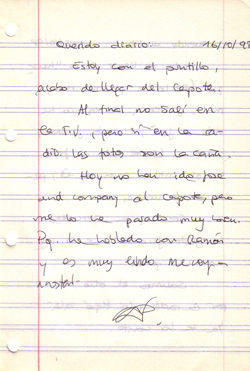 Querido diario 16/10/98
Estoy con el puntillo,
acabo de llegar del Capote.
Al final no salí en
la T.V., pero sí en la ra-
dio. Las fotos son la caña.
Hoy no han ido Jose
and company al Capote, pero
me lo he pasado muy bien.
Pq. he hablado con Ramón
y es muy lindo. Me voy